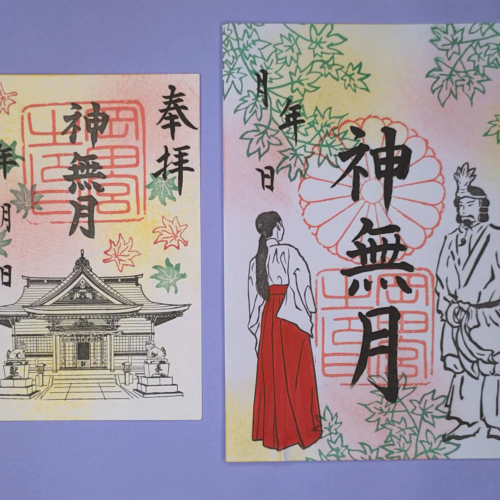 奉拝
神無月
年
月
日
神無月
年
月
日